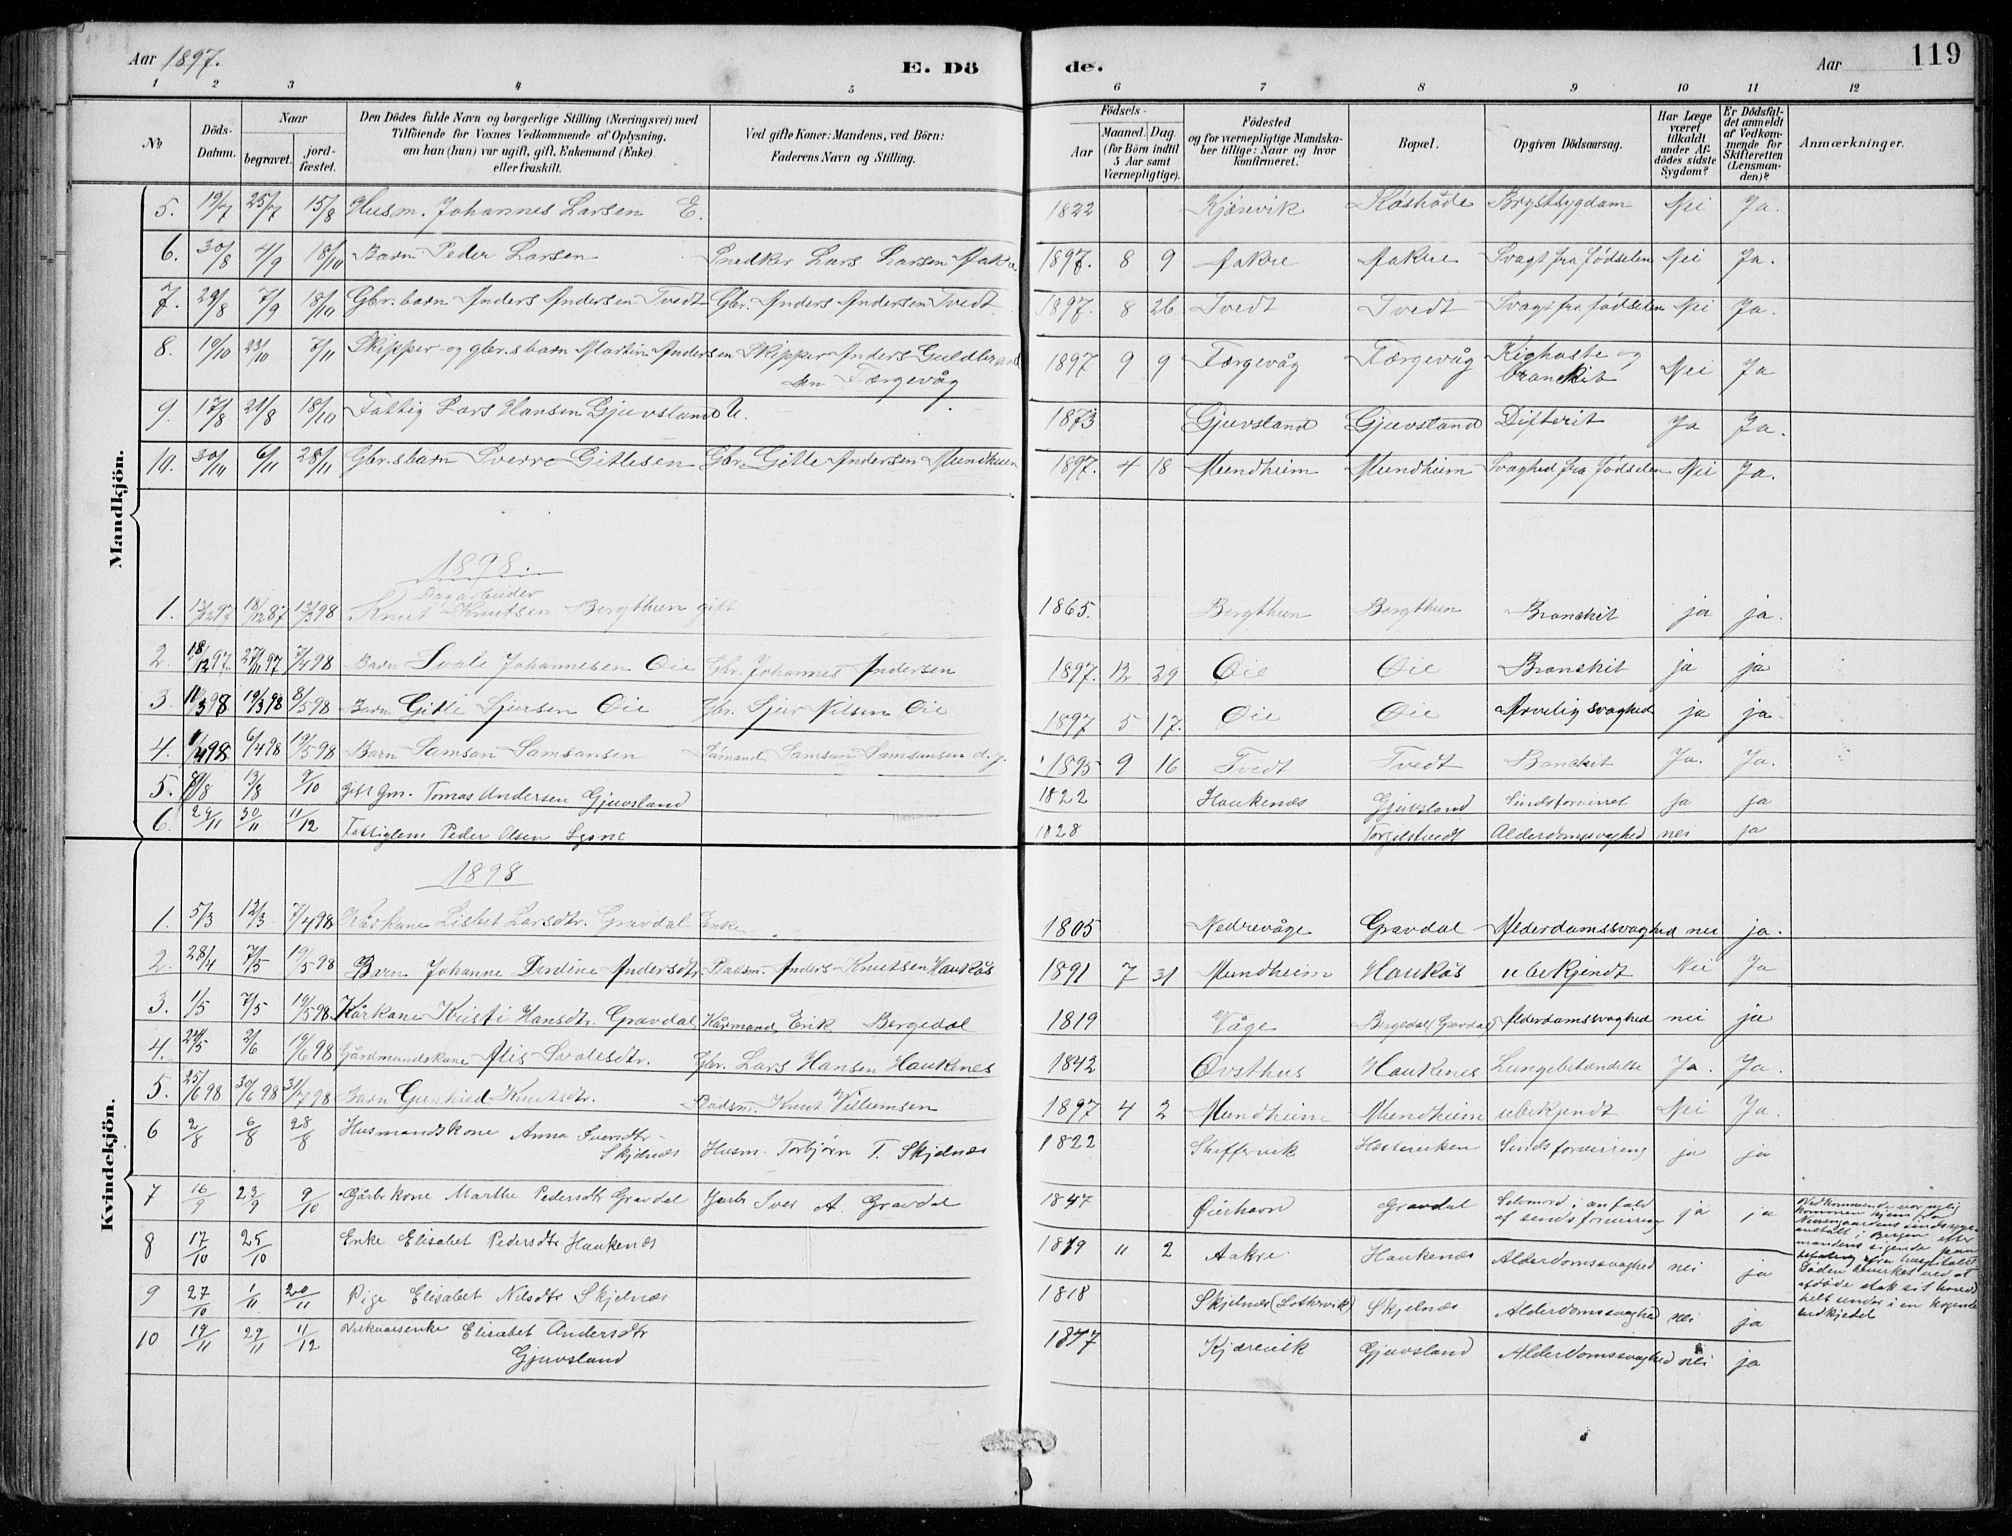 Aar 1897. E. Dö de. Aar 119
1 2 3 4 5 6 7 8 9 10 11 12
№
Döds-Datum.
Naar
begravet.
jord-fæstet.
Den Dödes fulde Navn og borgerlige Stilling (Næringsvei) med
Tilföiende for Voxnes Vedkommende af Oplysning,
om han (hun) var ugift, gift, Enkemand (Enke)
eller fraskilt.
Ved gifte Koner: Mandens, ved Börn:
Faderens Navn og Stilling.
Födsels-
Aar
Maaned. Dag.
(for Börn indtil
5 Aar samt
Værnepligtige).
Födested
og for værnepligtige Mandska-
ber tillige: Naar og hvor
konfirmeret.
Bopæl.
Opgiven Dödsaarsag.
Har Læge
været
tilkaldt
under Af-
dödes sidste
Sygdom?
Er Dödsfal-
det anmeldt
af Vedkom-
mende for
Skifteretten
(Lensman-
den)?
Anmærkninger.
Mandkjön.
5. 19/7 25/7 15/8 Husm. Johannes Larsen E. 1822 Kjærevik Brystsygdam Nei Ja.
6. 30/8 4/9 18/10 Barn Peder Larsen Snedker Lars Larsen Aakre 1897. 8 9 Aakre Aakre Svagt fra fødselen Nei Ja.
7. 29/8 7/9 18/10 Gbr. barn Anders Andersen Tvedt Gbr. Anders Andersen Tvedt 1897. 8 26 Tvedt Tvedt Svagt fra fødselen Nei Ja.
8. 19/10 23/10 7/11 Skipper og gbr.s barn Martin Andersen Skipper Anders Guldbrand
sen Færgevåg 1897 9 9 Færgevåg Færgevåg Kighoste og
bronkit Nei Ja
9. 17/8 21/8 18/10 Fattig Lars Hansen Gjuvsland U. 1873 Gjuvsland Gjuvsland Difterit Ja Ja.
10. 30/10 6/11 28/11 Gbr.s barn Sverre Gitlesen Gbr. Gitle Andersen Mundheim 1897. 4 18 Mundheim Mundheim Svaghed fra fødselen Nei Ja.
1898.
Dagarbeider
1. 13/12 97 18/12 87 13/3 98 Knut Knutsen Bergthun gift 1865. Bergthun Bergthun Bronkit ja ja.
2. 18/12 97. 27/11 97 7/4 98 Barn Svale Johannesen Øie Gbr. Johannes Andersen 1897. 12 29 Øie Øie Bronkit ja ja
3. 11/3 98 19/3 98 8/5 98 Barn Gitle Sjursen Øie Gbr. Sjur Nilsen Øie 1897 5 17. Øie Øie Arvelig svaghed ja ja.
4. 1/4 98 6/4 98 19/5 98 Barn Samson Samsonsen Sømand Samson Samsonsen d.y. 1895 9 16 Tvedt Tvedt Bronkit Ja. Ja.
5. 13/8 9/10 gift Gm. Tomas Andersen Gjuvsland 1822 Haukenæs Gjuvsland Sindsforvirret Ja ja
6. 24/11 30/11 11/12 Fattiglem Peder Olsen 1828 Alderdomssvaghed nei ja
Kvindekjön.
1898
1. 5/3 12/3 7/4 98 Kårkone Lisbet Larsdtr. Gravdal Enke 1805 Nedrevåge Gravdal Alderdamssvaghed nei ja.
2. 28/4 7/5 19/5 98 Barn Johanne Andersdtr. Pladsm. Anders Knutsen Haukås 1891 7 31 Mundheim Haukås ubekjendt Nei Ja
3. 1/5 7/5 19/5 98 Kårkone Kristi Hansdtr. Gravdal Kårmand Erik Bergedal 1819 Våge Bergedal (Gravdal) Alderdamssvaghed nei ja
4. 24/5 2/6 19/6 98 Gårdmandskone Alis Svalesdtr. Gbr. Lars Hansen Haukenes 1842 Øvsthus Haukenes Lungebetændelse Ja. Ja.
5. 25/6 98 30/6 98 31/7 98 Barn Gunhild Knutsdtr. Pladsm. Knut Villumsen 1897 4 2 Mundheim Mundheim ubekjendt Nei Ja.
6 2/8 6/8 28/8 Husmandskone Anna Sversdtr-
Skjelnæs Husm. Torbjørn T. Skjelnæs 1822 Sindsforvirring ja ja
7 16/9 23/9 9/10 Gårbr kone Marthe Pedersdtr Gravdal Garbr Iver A. Gravdal 1847 Øierhavn Gravdal Selvmord i anfald
af sindsforvirring ja ja
8 17/10 25/10 Enke Elisabet Pedersdtr Haukenæs 1819 11 2 Aakre Haukenæs Alderdomssvaghed nei ja
9 27/10 1/11 20/11 Pige Elisabet Nilsdtr Skjelnæs 1818 Skjelnæs Skjelnæs Alderdomssvaghed nei ja
10 19/11 29/11 11/12 Elisabet Andersdtr
Gjuvsland 1877 Kjærevik Gjuvsland Alderdomssvaghed nei ja
Vedkommende var nylig
kommen hjem fra
Neuengaardens sindssyge-
anstalt i Bergen efter
mandens
fra hospitalet.
Døden bevirkes ved at
afdøde stak sit hoved
helt under i en kogende